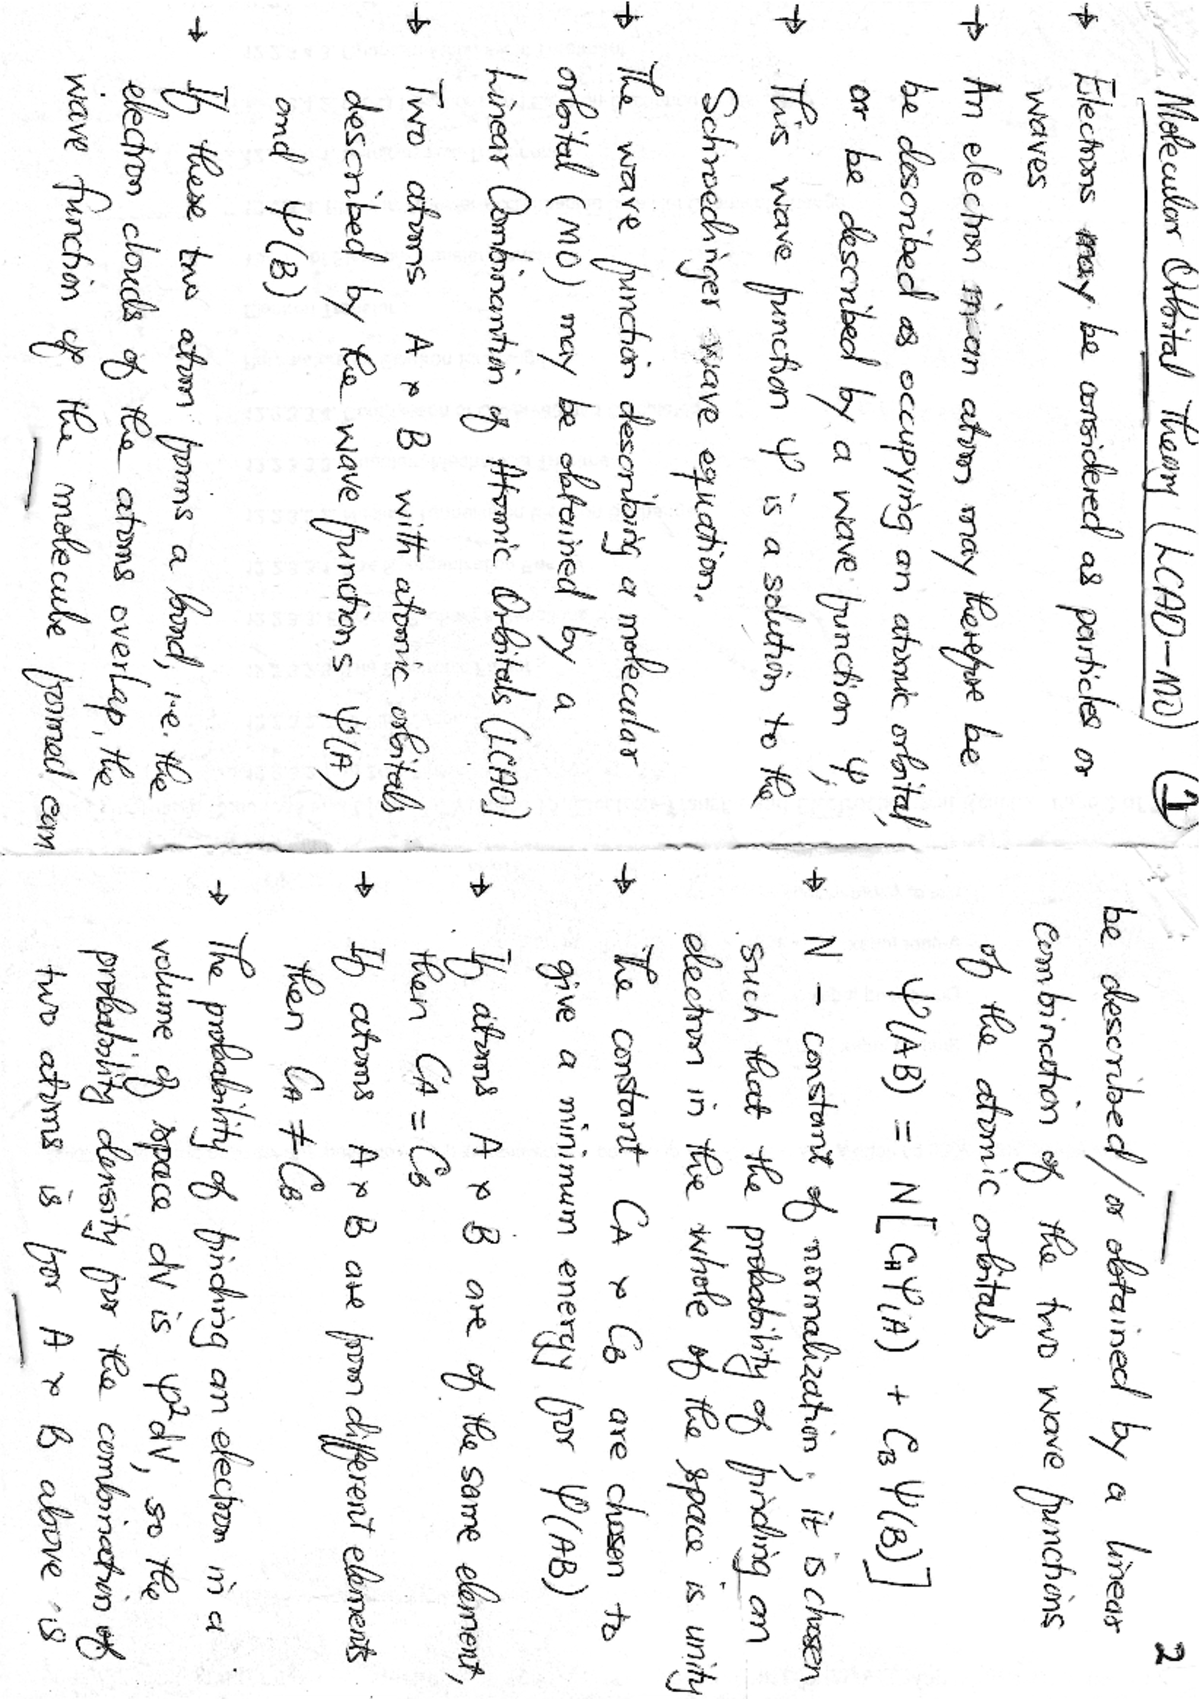 Molecular Orbital Theory (LCAO-MO) 1
→ Electrons may be considered as particles or
waves
→ An electron in an atom may therefore be
be described as occupying an atomic orbital,
or be described by a wave function ψ,
→ This wave function ψ is a solution to the
Schroedinger wave equation.
→ The wave function describing a molecular
orbital (MO) may be obtained by a
Linear Combination of Atomic Orbitals (LCAO)
→ Two atoms A & B with atomic orbitals
described by the wave functions ψ(A)
and ψ(B)
→ If these two atom forms a bond, i.e. the
electron clouds of the atoms overlap, the
wave function of the molecule formed can
2
be described/or obtained by a linear
combination of the two wave functions
of the atomic orbitals
ψ(AB) = N[CAψ(A) + CBψ(B)]
→ N - constant of normalization, it is chosen
such that the probability of finding an
electron in the whole of the space is unity
→ The constant CA & CB are chosen to
give a minimum energy for ψ(AB)
→ If atoms A & B are of the same element,
then CA = CB
→ If atoms A & B are from different elements
then CA ≠ CB
→ The probability of finding an electron in a
volume of space dV is ψ²dV, so the
probability density for the combination of
two atoms is for A & B above is